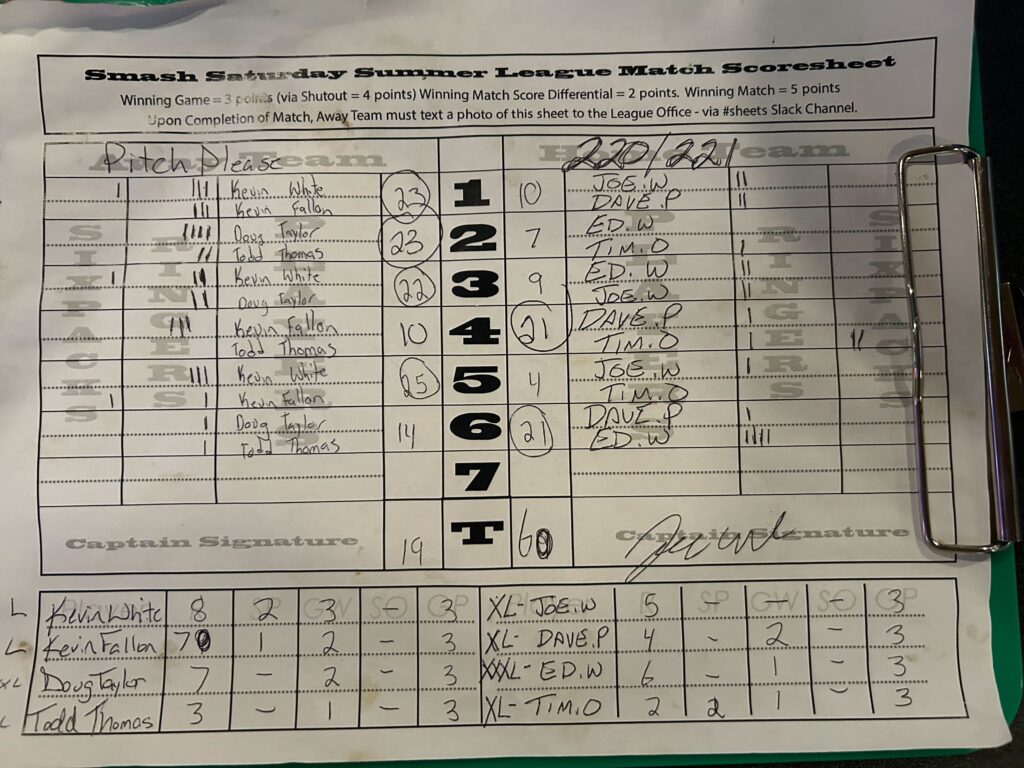 Smash Saturday Summer League Match Scoresheet
Winning Game = 3 points (via Shutout = 4 points) Winning Match Score Differential = 2 points. Winning Match = 5 points
Upon Completion of Match, Away Team must text a photo of this sheet to the League Office - via #sheets Slack Channel.
Pitch Please 220/221
Kevin White 23 1 10 JOE.W
Kevin Fallon DAVE.P
Doug Taylor 23 2 7 ED.W
Todd Thomas TIM.O
Kevin White 22 3 9 ED.W
Doug Taylor JOE.W
Kevin Fallon 10 4 21 DAVE.P
Todd Thomas TIM.O
Kevin White 25 5 4 JOE.W
Kevin Fallon TIM.O
Doug Taylor 14 6 21 DAVE.P
Todd Thomas ED.W
7
Captain Signature 19 T 6 Captain Signature
L Kevin White 8 2 3 - 3 XL- JOE.W 5 - - - 3
L Kevin Fallon 7 1 2 - 3 XL- DAVE.P 4 - 2 - 3
XL Doug Taylor 7 - 2 - 3 XXL- ED.W 6 - 1 - 3
L Todd Thomas 3 - 1 - 3 XL- TIM.O 2 2 1 - 3